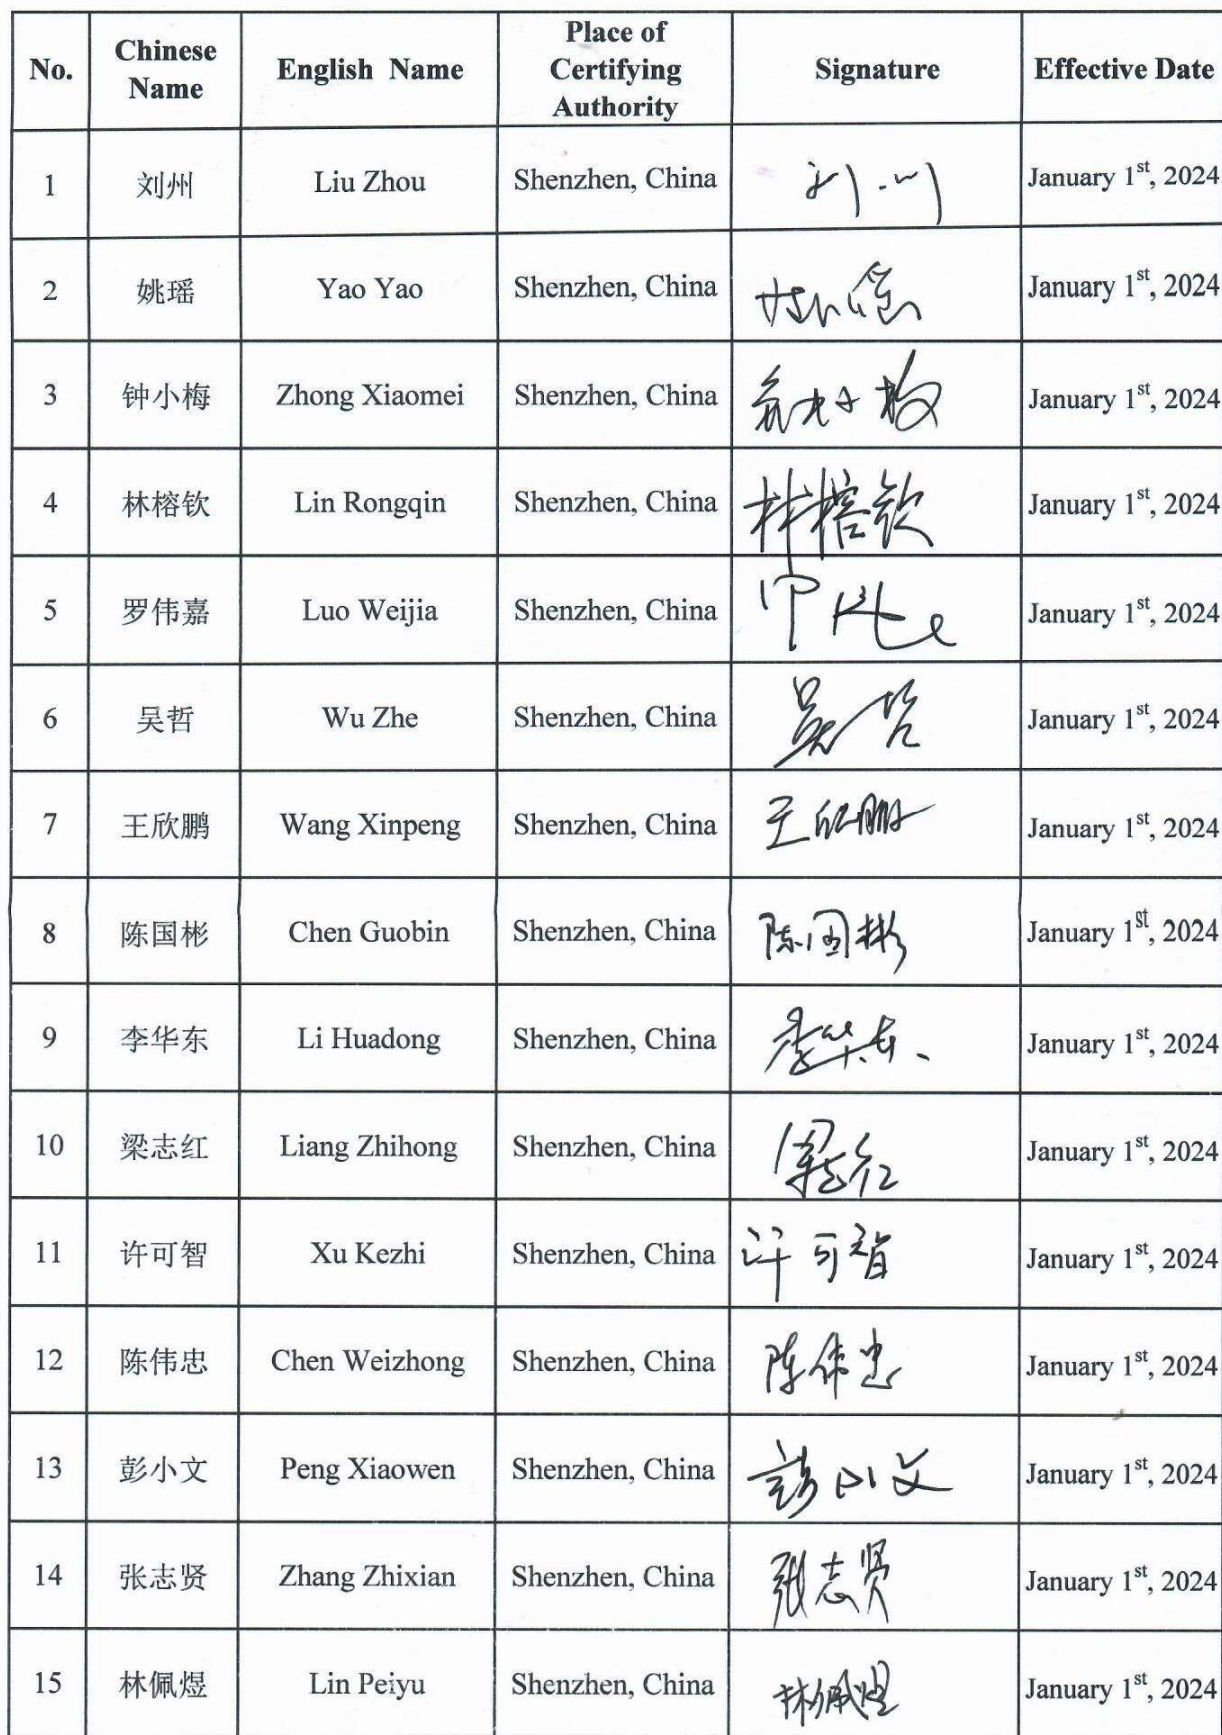 No. Chinese Name English Name Place of Certifying Authority Signature Effective Date
1 刘州 Liu Zhou Shenzhen, China January 1st, 2024
2 姚瑶 Yao Yao Shenzhen, China January 1st, 2024
3 钟小梅 Zhong Xiaomei Shenzhen, China January 1st, 2024
4 林榕钦 Lin Rongqin Shenzhen, China 林榕钦 January 1st, 2024
5 罗伟嘉 Luo Weijia Shenzhen, China January 1st, 2024
6 吴哲 Wu Zhe Shenzhen, China 吴哲 January 1st, 2024
7 王欣鹏 Wang Xinpeng Shenzhen, China 王欣鹏 January 1st, 2024
8 陈国彬 Chen Guobin Shenzhen, China 陈国彬 January 1st, 2024
9 李华东 Li Huadong Shenzhen, China 李华东 January 1st, 2024
10 梁志红 Liang Zhihong Shenzhen, China January 1st, 2024
11 许可智 Xu Kezhi Shenzhen, China 许可智 January 1st, 2024
12 陈伟忠 Chen Weizhong Shenzhen, China 陈伟忠 January 1st, 2024
13 彭小文 Peng Xiaowen Shenzhen, China 彭小文 January 1st, 2024
14 张志贤 Zhang Zhixian Shenzhen, China 张志贤 January 1st, 2024
15 林佩煜 Lin Peiyu Shenzhen, China 林佩煜 January 1st, 2024